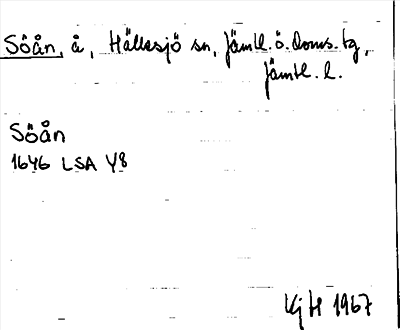 Söån, å, Hällesjö sn, Jämtl. ö. doms. tg,
Jämtl. l.
Söån
1646 LSA Y8
KjH 1967